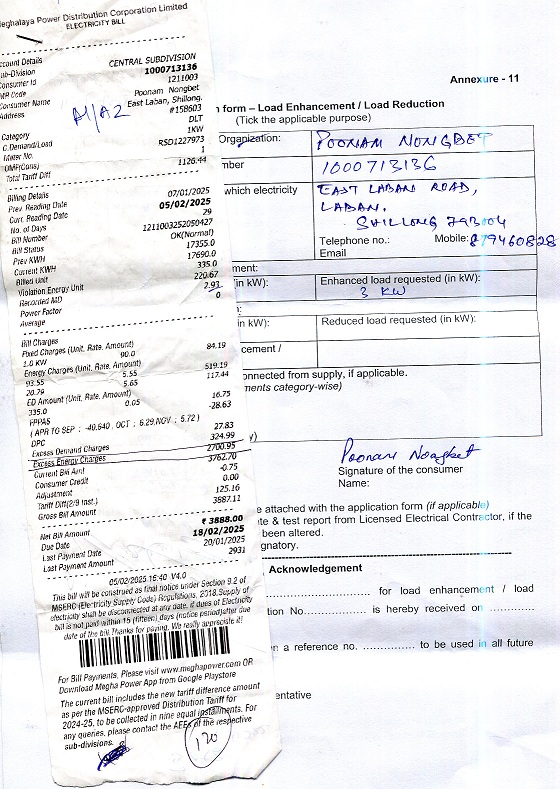 Meghalaya Power Distribution Corporation Limited
ELECTRICITY BILL
Account Details
Sub-Division CENTRAL SUBDIVISION
Consumer Id 1000713136
MR Code 1211003
Consumer Name Poonam Nongbet
Address East Laban, Shillong.
#158603
A/A2
Category DLT
C.Demand/Load 1KW
Meter No. RSD1227973
OMF(Cons) 1
Total Tariff Diff 1126.44
Billing Details
Prev. Reading Date 07/01/2025
Curr. Reading Date 05/02/2025
No. of Days 29
Bill Number 1211003252050427
Bill Status OK(Normal)
Prev KWH 17355.0
Current KWH 17690.0
Billed Unit 335.0
Violation Energy Unit 220.67
Recorded MD 2.93
Power Factor 0
Average
Bill Charges
Fixed Charges (Unit, Rate, Amount)
1.0 KW 90.0 84.19
Energy Charges (Unit, Rate, Amount)
93.55 5.55 519.19
20.79 5.65 117.44
ED Amount (Unit, Rate, Amount)
335.0 0.05 16.75
FPPAS -28.63
( APR TO SEP : -40.640 , OCT : 6.29,NOV : 5.72 )
DPC 27.83
Excess Demand Charges 324.99
Excess Energy Charges 2700.95
Current Bill Amt 3762.70
Consumer Credit -0.75
Adjustment 0.00
Tariff Diff(2/9 Inst.) 125.16
Gross Bill Amount 3887.11
Net Bill Amount ₹ 3888.00
Due Date 18/02/2025
Last Payment Date 20/01/2025
Last Payment Amount 2931
05/02/2025 16:40 V4.0
This bill will be construed as final notice under Section 9.2 of
MSERC (Electricity Supply Code) Regulations, 2018.Supply of
electricity shall be disconnected at any date, if dues of Electricity
bill is not paid within 15 (fifteen) days (notice period)after due
date of the bill.Thanks for paying. We really appreciate it!
For Bill Payments, Please visit www.meghapower.com OR
Download Megha Power App from Google Playstore
The current bill includes the new tariff difference amount
as per the MSERC-approved Distribution Tariff for
2024-25, to be collected in nine equal installments. For
any queries, please contact the AEEs of the respective
sub-divisions.
120
Annexure - 11
n form – Load Enhancement / Load Reduction
(Tick the applicable purpose)
Organization: POONAM NONGBET
mber 1000713136
which electricity EAST LABAN ROAD,
LABAN.
SHILLONG 793004
Telephone no.: Mobile:
Email
ment:
(in kW): Enhanced load requested (in kW):
3 KW
n:
in kW): Reduced load requested (in kW):
cement /
onnected from supply, if applicable.
ments category-wise)
y)
Poonam Nongbet
Signature of the consumer
Name:
e attached with the application form (if applicable)
te & test report from Licensed Electrical Contractor, if the
been altered.
gnatory.
Acknowledgement
for load enhancement / load
tion No. is hereby received on
n a reference no. to be used in all future
entative